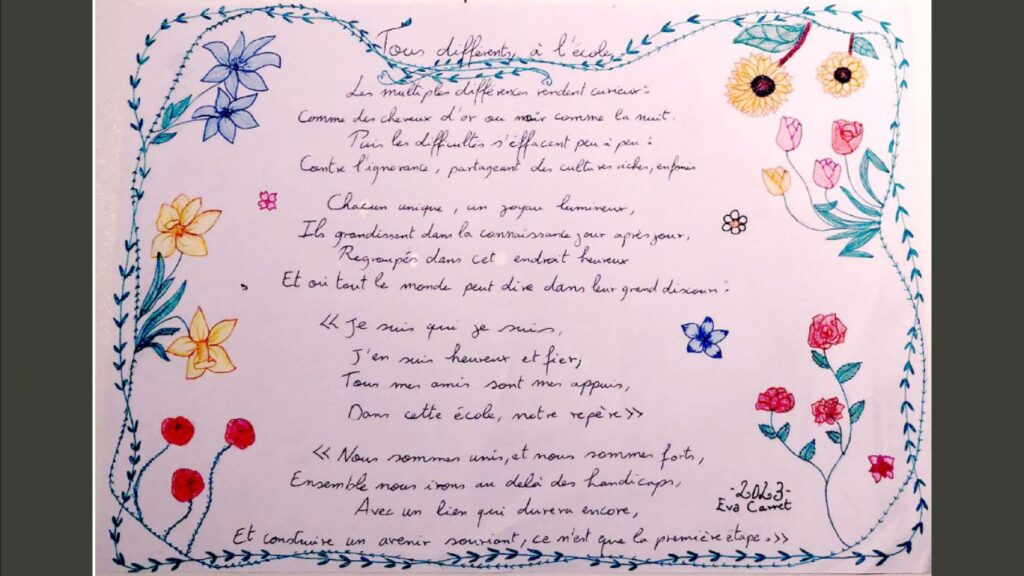 Tous différents, à l'école,
Les multiples différences rendent curieux :
Comme des cheveux d'or ou noir comme la nuit.
Puis les difficultés s'éffacent peu à peu :
Contre l'ignorance, partageant des cultures riches, enfouies
Chacun unique, un joyau lumineux,
Ils grandissent dans la connaissance jour après jour,
Regroupés dans cet endroit heureux
Et où tout le monde peut dire dans leur grand discours :
<< Je suis qui je suis,
J'en suis heureux et fier,
Tous mes amis sont mes appuis,
Dans cette école, notre repère >>
<< Nous sommes unis, et nous sommes forts,
Ensemble nous irons au delà des handicaps,
Avec un lien qui durera encore,
Et construire un avenir souriant, ce n'est que la première étape. >>
-2023-
Eva Carret